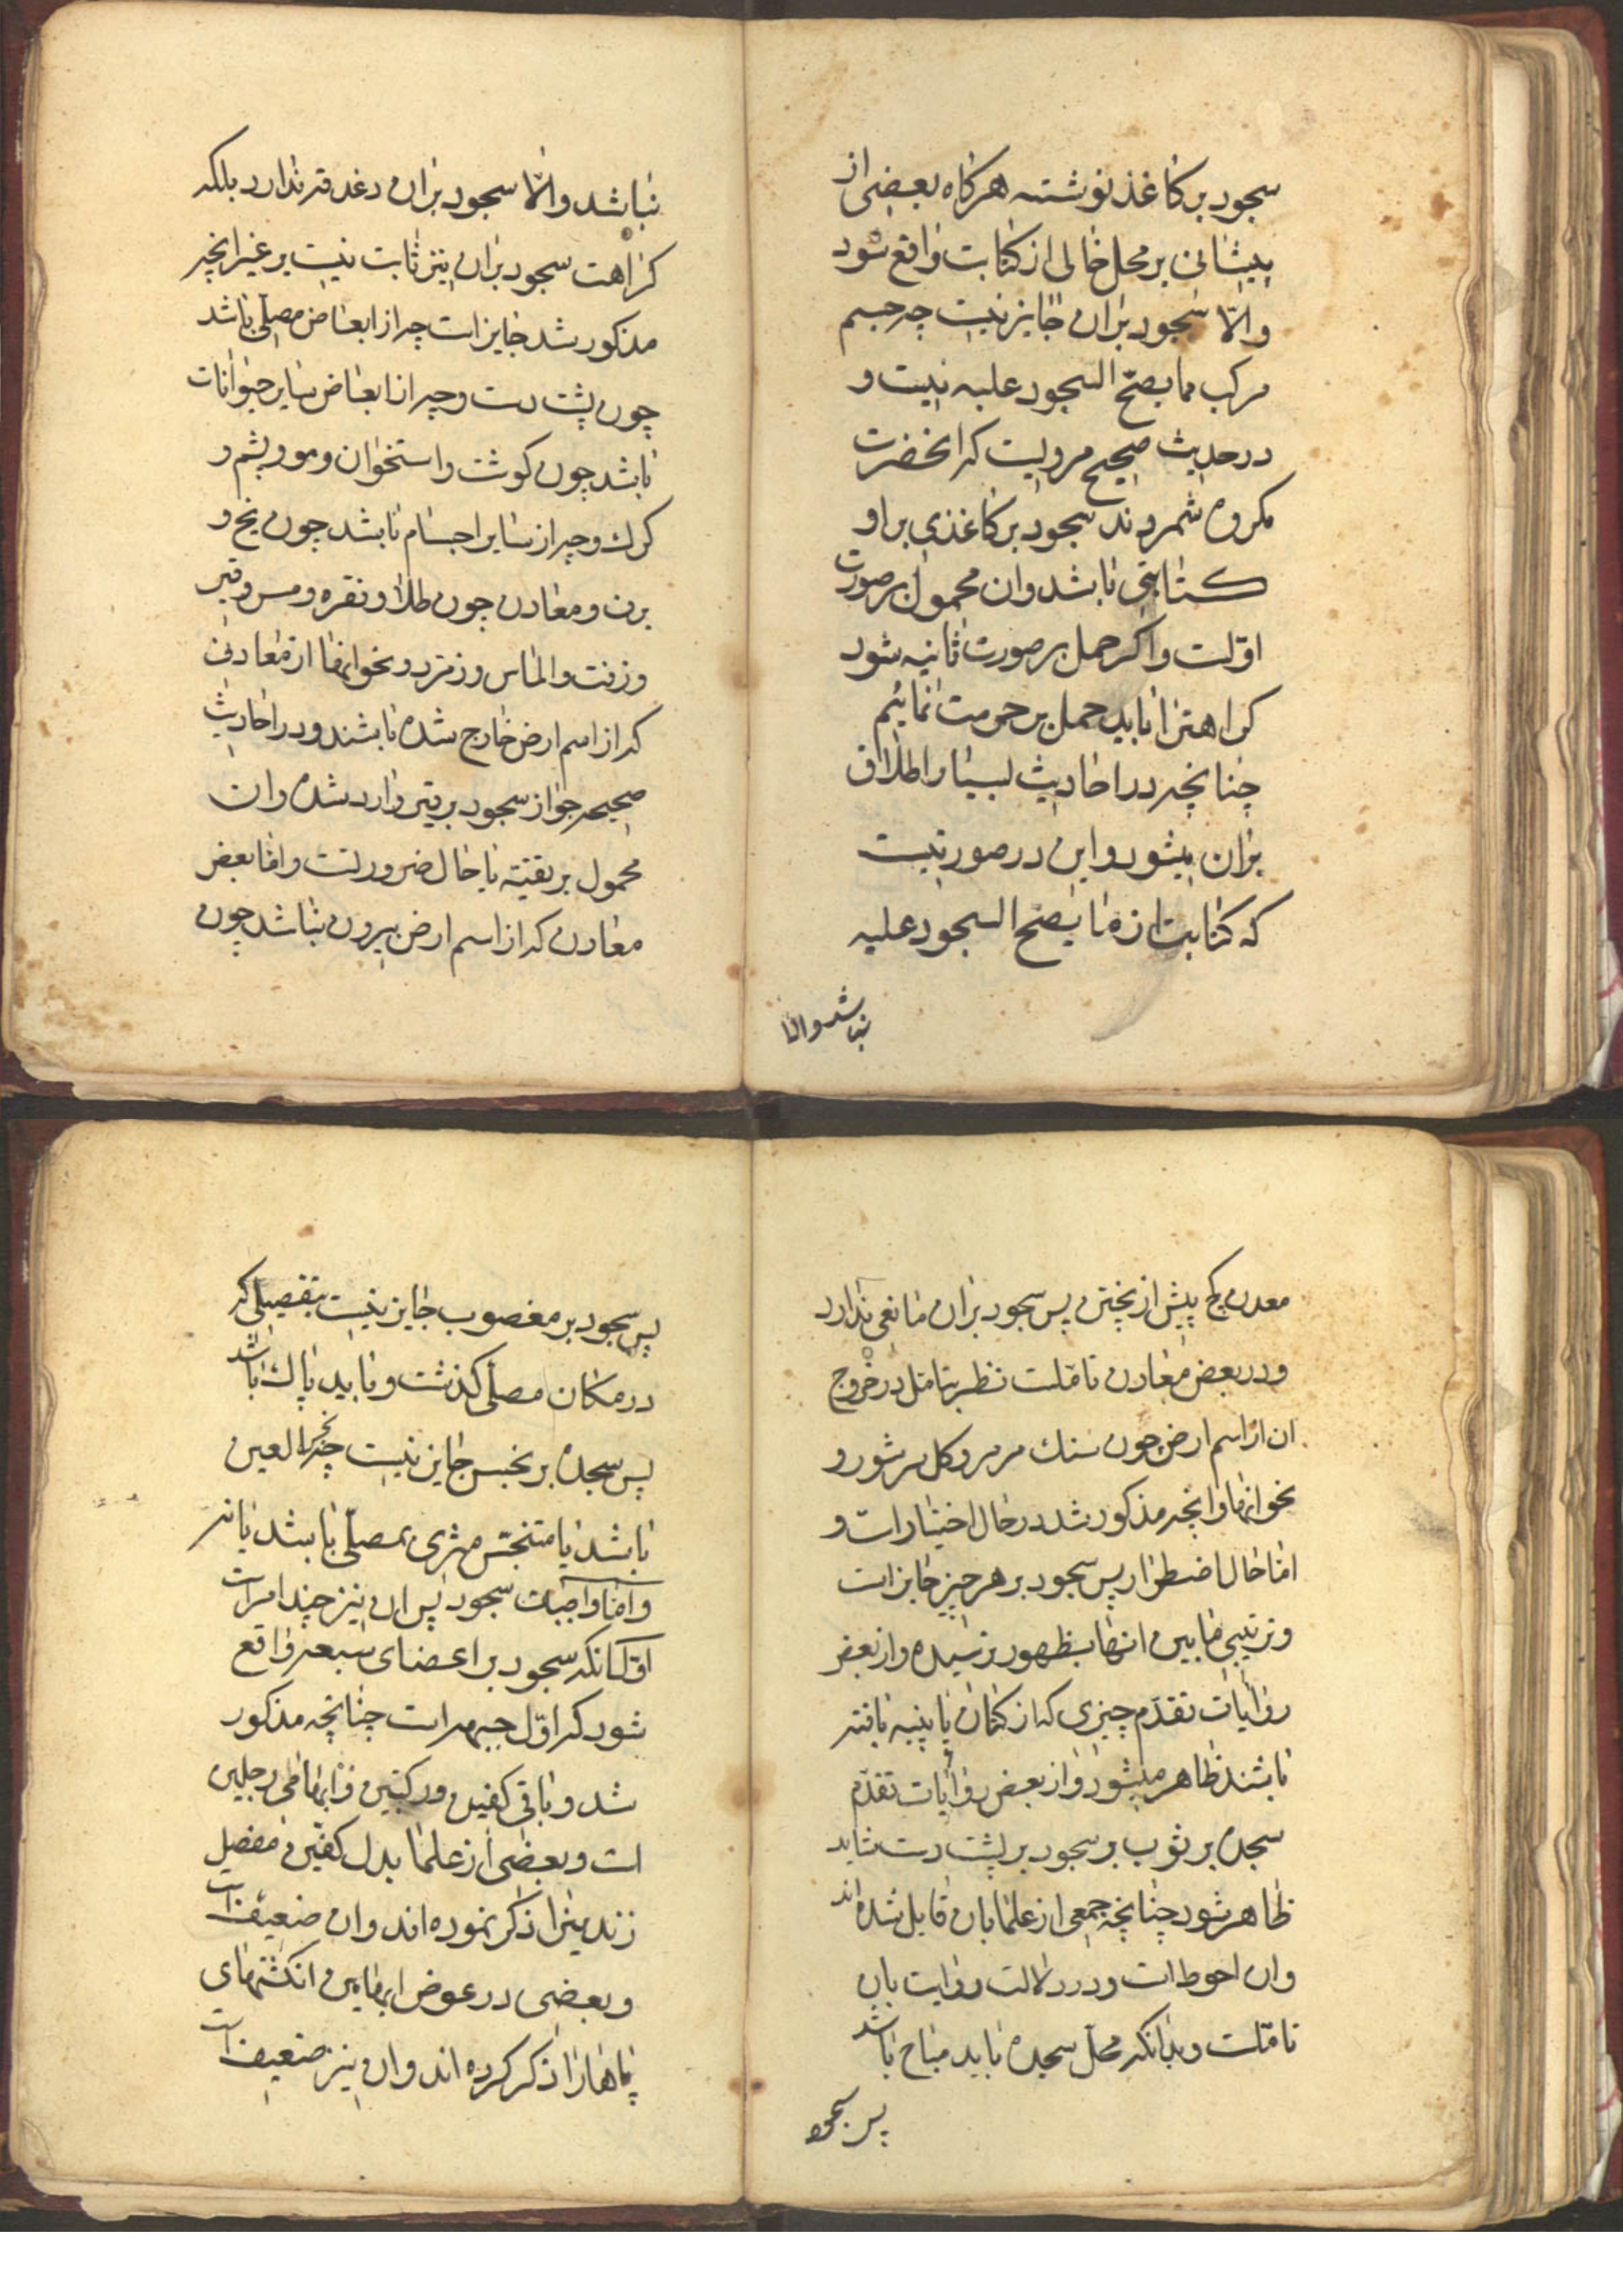 سجود بر کاغذ نوشته هرکاه بعضی از
پیشانی بر محل خالی از کتابت واقع شود
والّا سجود بران جایز نیست چه جسم
مرکب مما یصحّ السجود علیه نیست و
در حدیث صحیح مرویست که انحضرت
مکروه شمردند سجود بر کاغذی براو
کتابتی باشد وان محمول بر صورت
اوّلست واکر حمل بر صورت ثانیه شود
کراهترا باید حمل بر حرمت نمائیم
چنانچه در احادیث بسیار اطلاق
بران میشود واین در صورتیست
که کتابت ازما یصح السجود علیه
نباشد والا
نباشد والّا سجود بران دغدقه ندارد بلکه
کراهت سجود بران نیز ثابت نیست بر غیر انچه
مذکور شد جایز است چه از ابعاض مصلّی باشد
چون پشت دست وچه از ابعاض سایر حیوانات
باشد چون کوشت واستخوان ومو وپشم و
کرك وچه از سایر اجسام باشد چون یخ و
برف ومعادن چون طلا ونقره ومس وقیر
وزفت والماس وزمرّد ونحو انها از معادنی
که از اسم ارض خارج شده باشند ودر احادیث
صحیحه جواز سجود بر قیر وارد شده وان
محمول بر تقیّه یا حال ضرورتست وامّا بعض
معادن که از اسم ارض بیرون نباشد چون
معدن کچ پیش از پختن پس سجود بران مانعی ندارد
ودر بعض معادن تامّلست نظر بتامّل در خروج
ان از اسم ارض چون سنك مرمر وکل سرشور و
نحو انها وانچه مذکور شد در حال اختیار است و
امّا حال اضطرار پس سجود بر هر چیز جایز است
وترتیبی مابین انها بظهور نرسیده واز بعض
روایات تقدّم چیزی که از کتان یا پنبه بافته
باشند ظاهر میشود واز بعض روایات تقدّم
سجده بر ثوب بر سجود بر پشت دست شاید
ظاهر شود چنانچه جمعی از علما بان قایل شده اند
وان احوط است ودر دلالت روایت بان
تامّلست وبدانکه محلّ سجده باید مباح باشد
پس سجود
پس سجود بر مغصوب جایز نیست بتفصیلی که
در مکان مصلّی کذشت وباید پاك باشد
پس سجده بر نجس جایز نیست چه نجس العین
باشد یا متنجّس مسری بمصلّی باشد یا نه
وامّا واجبات سجود پس ان نیز چند امر است
اوّل انکه سجود بر اعضای سبعه واقع
شود که اوّل جبهه است چنانچه مذکور
شد وباقی کفین ورکبتین وابهامی رجلین
است وبعضی از علما بدل کفّین مفصل
زندینرا ذکر نموده اند وان ضعیف است
وبعضی در عوض ابهامین انکشتهای
پاها را ذکر کرده اند وان نیز ضعیف است